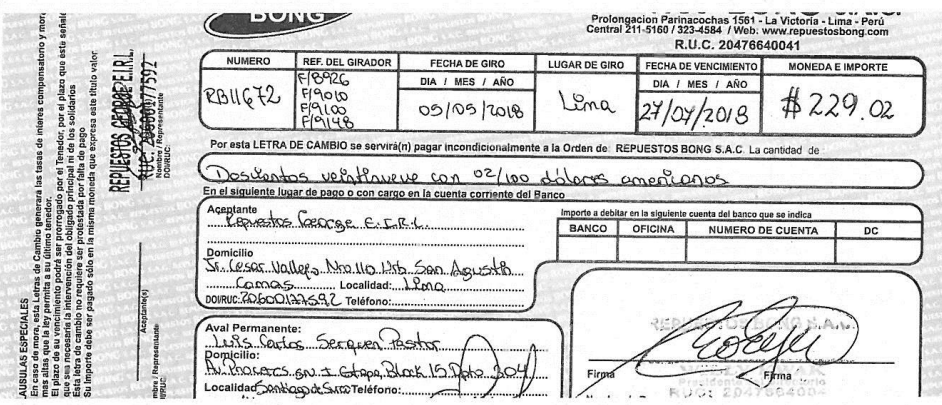 BONG
Prolongacion Parinacochas 1561 - La Victoria - Lima - Perú
Central 211-5160 / 323-4584 / Web: www.repuestosbong.com
R.U.C. 20476640041
NUMERO REF. DEL GIRADOR FECHA DE GIRO LUGAR DE GIRO FECHA DE VENCIMIENTO MONEDA E IMPORTE
RB11672
F/8926
F/9010
F/9100
F/9148
DIA / MES / AÑO
05/05/2018
Lima
DIA / MES / AÑO
27/07/2018
$ 229.02
Por esta LETRA DE CAMBIO se servirá(n) pagar incondicionalmente a la Orden de REPUESTOS BONG S.A.C. La cantidad de
Doscientos veintinueve con 02/100 dólares americanos
En el siguiente lugar de pago o con cargo en la cuenta corriente del Banco
Aceptante
Repuestos George E.I.R.L.
Domicilio
Jr. Cesar Vallejo Nro 110 Urb. San Agustin
Comas Localidad: Lima
DOI/RUC: 20600177592 Teléfono:
Importe a debitar en la siguiente cuenta del banco que se indica
BANCO OFICINA NUMERO DE CUENTA DC
Aval Permanente:
Luis Carlos Serquen Pastor
Domicilio:
Av. Proceres s/n I Etapa, Block 15 Dpto 304
Localidad Santiago de Surco Teléfono:
REPUESTOS BONG S.A.C.
Firma Firma
RUC: 20476640041
AUSULAS ESPECIALES
En caso de mora, esta Letras de Cambio generara las tasas de interes compensatorio y mora
mas altas que la ley permita a su último tenedor.
El plazo de su vencimiento podrá ser prorrogado por el Tenedor, por el plazo que este señale
que sea necesaria la intervención del obligado principal ni de los solidarios
Esta letra de cambio no requiere ser protestada por falta de pago
Su Importe debe ser pagado sólo en la misma moneda que expresa este titulo valor
REPUESTOS GEORGE E.I.R.L.
RUC: 20600177592
Nombre / Representante
DOI/RUC:
Aceptante(s)
mbre / Representante